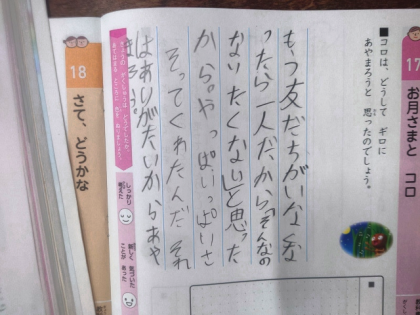 17
お月さまと コロ
■コロは、どうして ギロに
あやまろうと 思ったのでしょう。
もう友だちがいなくな
ったら一人だから「そんなの
ないたくない」と思った
から。やっぱいっぱいさ
そってくれたんだ それ
はありがたいからあや
まろう。
しっかり
考えた
新しく 気づいた
ことが あった
18
さて、どうかな